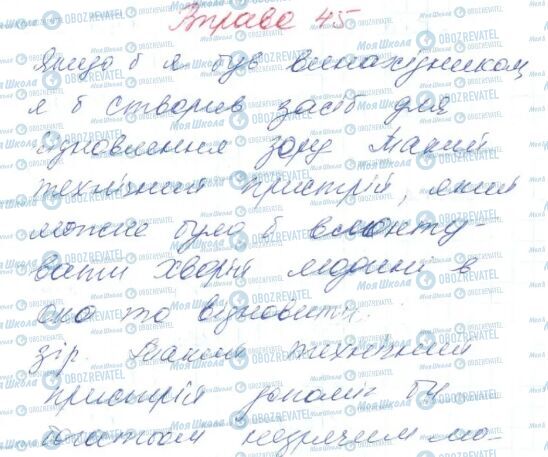 Вправа 45
Якщо б я був винахідником,
я б створив засіб для
відновлення зору. Такий
технічний пристрій, який
можна було б вмонту-
вати хворій людині в
око та відновити
зір. Такий технічний
пристрій допоміг би
багатьом незрячим лю-